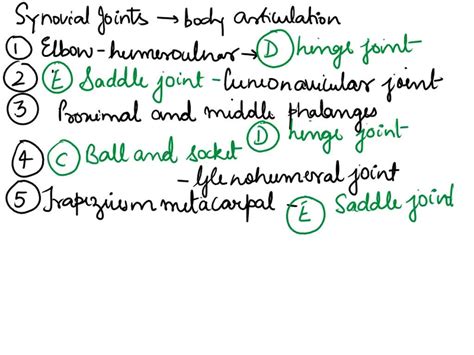 Synovial Joints → body articulation
① Elbow - humeroulnar → Ⓓ hinge joint
② Ⓔ Saddle joint - Cuneonavicular joint
③ Proximal and middle phalanges
Ⓓ hinge joint
④ Ⓒ Ball and socket
- Glenohumeral joint
⑤ Trapezium metacarpal - Ⓔ Saddle joint